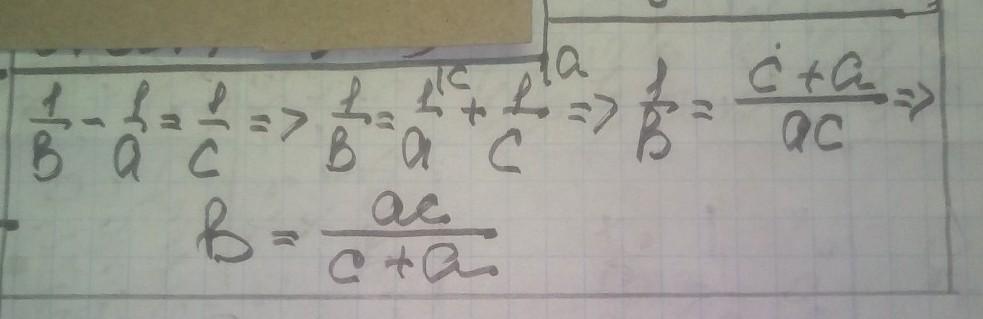 1/B - 1/a = 1/c => 1/B = 1/a |c + 1/c |a => 1/B = c + a/ac =>
B = ac/c + a